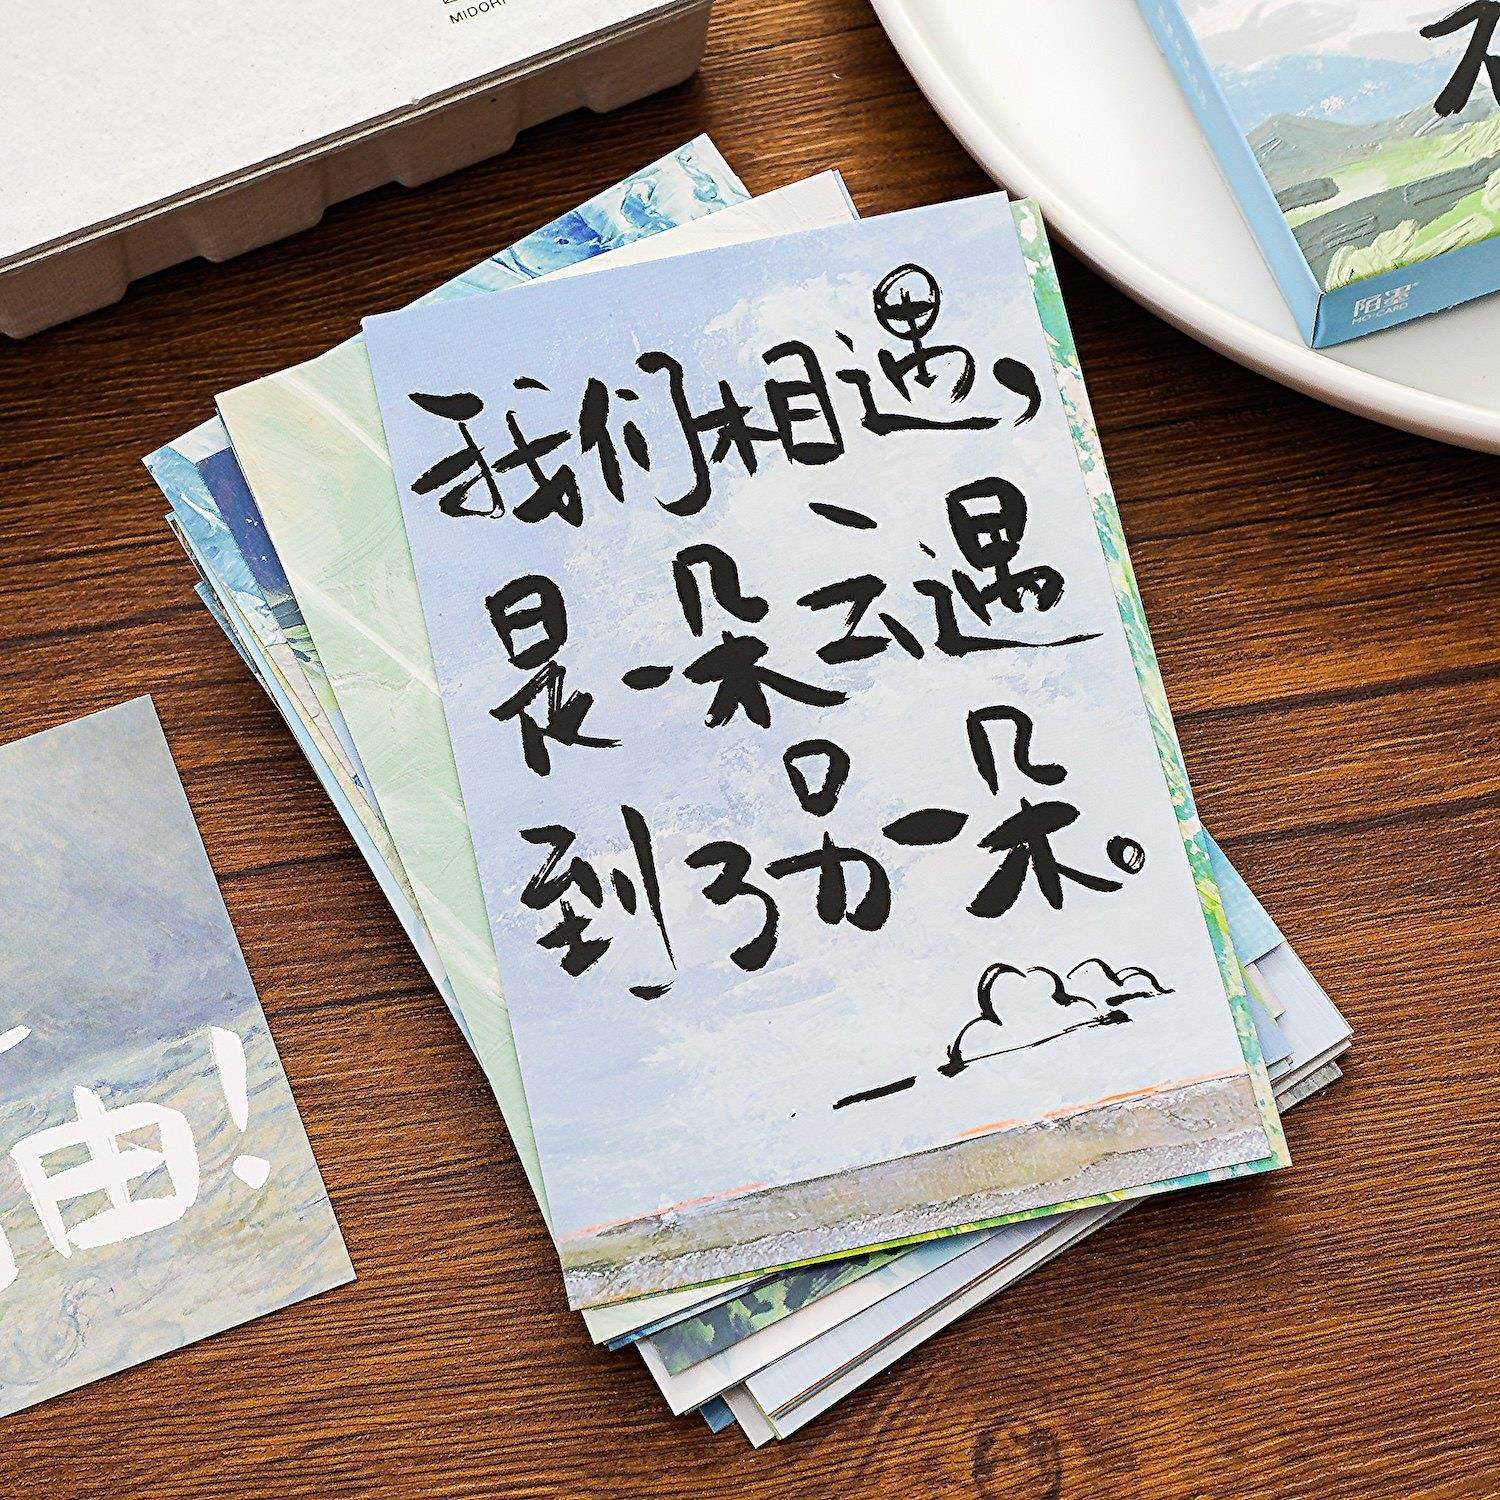 MIDORI
陌墨
MO·CARD
我们相遇,
是一朵云遇
到了另一朵。
由!